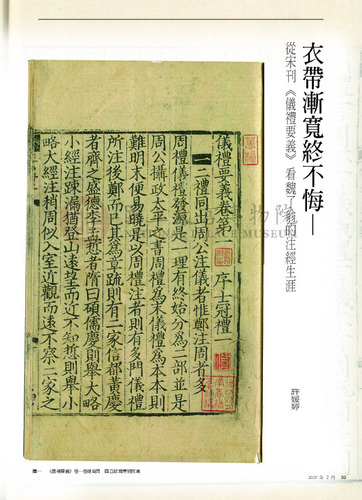 衣帶漸寬終不悔—
從宋刊《儀禮要義》看魏了翁的注經生涯
許媛婷
儀禮要義卷第一 序 士冠禮一
一二禮同出周公注儀者惟鄭注周者多
周禮儀禮發源是一理有終始分為二部並是
周公攝政太平之書周禮為末儀禮為本本則
難明末便易曉是以周禮注者則有多門儀禮
所注後鄭而已其為章疏則有二家信都黃慶
者齊之盛德李孟悊者隋曰碩儒慶則舉大略
小經注疎漏猶登山遠望而近不知悊則舉小
略大經注稍周似入室近觀而遠不察二家之
2007 年 2 月 50